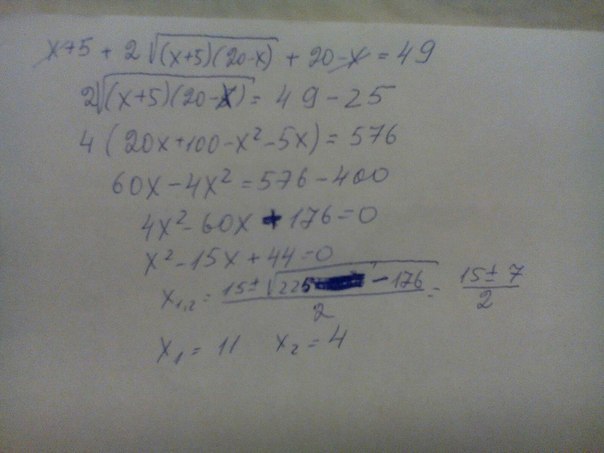 x+5 + 2√((x+5)(20-x)) + 20-x = 49
2√((x+5)(20-x)) = 49-25
4(20x+100-x²-5x) = 576
60x-4x² = 576-400
4x²-60x+176=0
x²-15x+44=0
x₁,₂ = (15±√(225-176))/2 = (15±7)/2
x₁ = 11   x₂ = 4